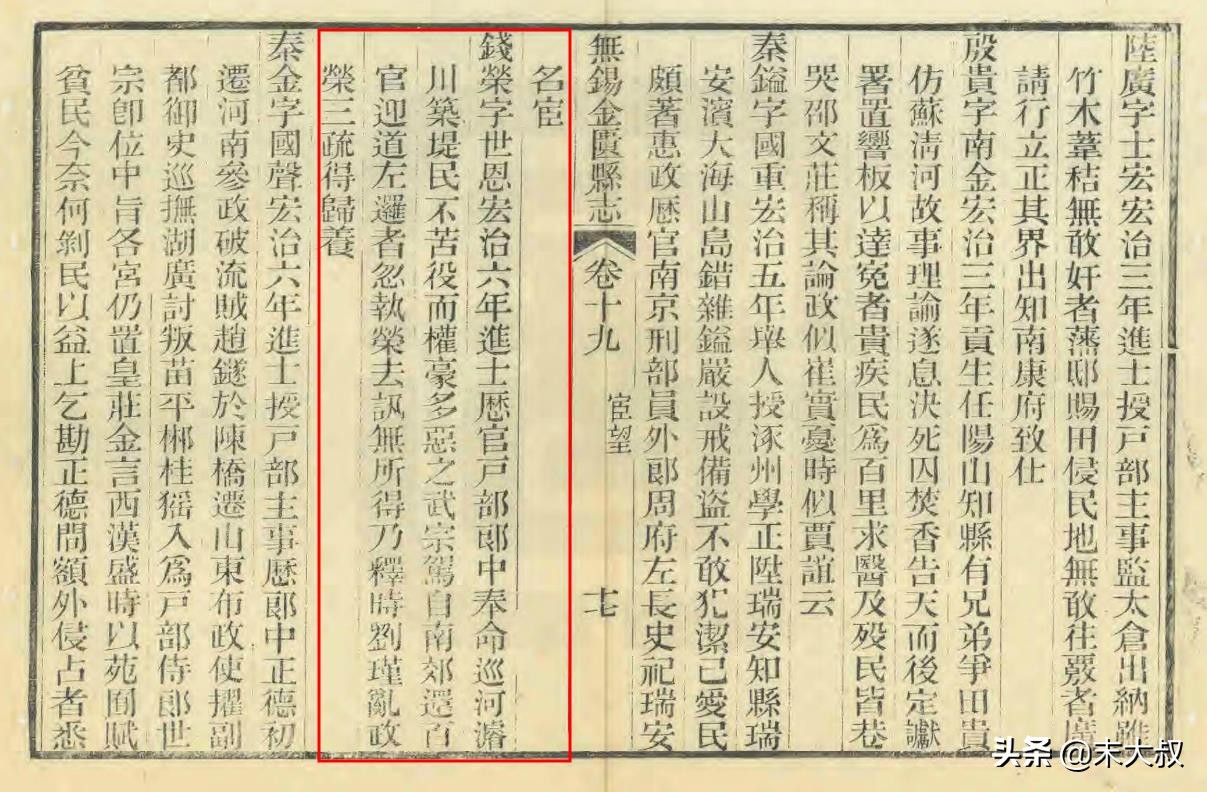 陸廣字士宏宏治三年進士授戸部主事監太倉出納雖
竹木葦秸無敢奸者藩邸賜田侵民地無敢往覈者廣
請行立正其界出知南康府致仕
殷貴字南金宏治三年貢生任陽山知縣有兄弟爭田貴
仿蘇淸河故事理諭遂息決死囚焚香告天而後定讞
署置響板以達寃者貴疾民爲百里求醫及歿民皆巷
哭邵文莊稱其論政似崔實憂時似賈誼云
秦鎰字國重宏治五年舉人授涿州學正陞瑞安知縣瑞
安濱大海山島錯雜鎰嚴設戒備盗不敢犯潔己愛民
頗著惠政歴官南京刑部員外郞周府左長史祀瑞安
無錫金匱縣志 卷十九 宦望 十七
名宦
錢榮字世恩宏治六年進士歴官戸部郞中奉命巡河濬
川築堤民不苦役而權豪多惡之武宗駕自南郊還百
官迎道左邏者忽執榮去訊無所得乃釋時劉瑾亂政
榮三疏得歸養
秦金字國聲宏治六年進士授戸部主事歴郞中正德初
遷河南參政破流賊趙鐩於陳橋遷山東布政使擢副
都御史巡撫湖廣討叛苗平郴桂猺入爲戸部侍郞世
宗卽位中旨各宮仍置皇莊金言西漢盛時以苑囿賦
貧民今奈何剝民以益上乞勘正德間額外侵占者悉
头条 @末大叔